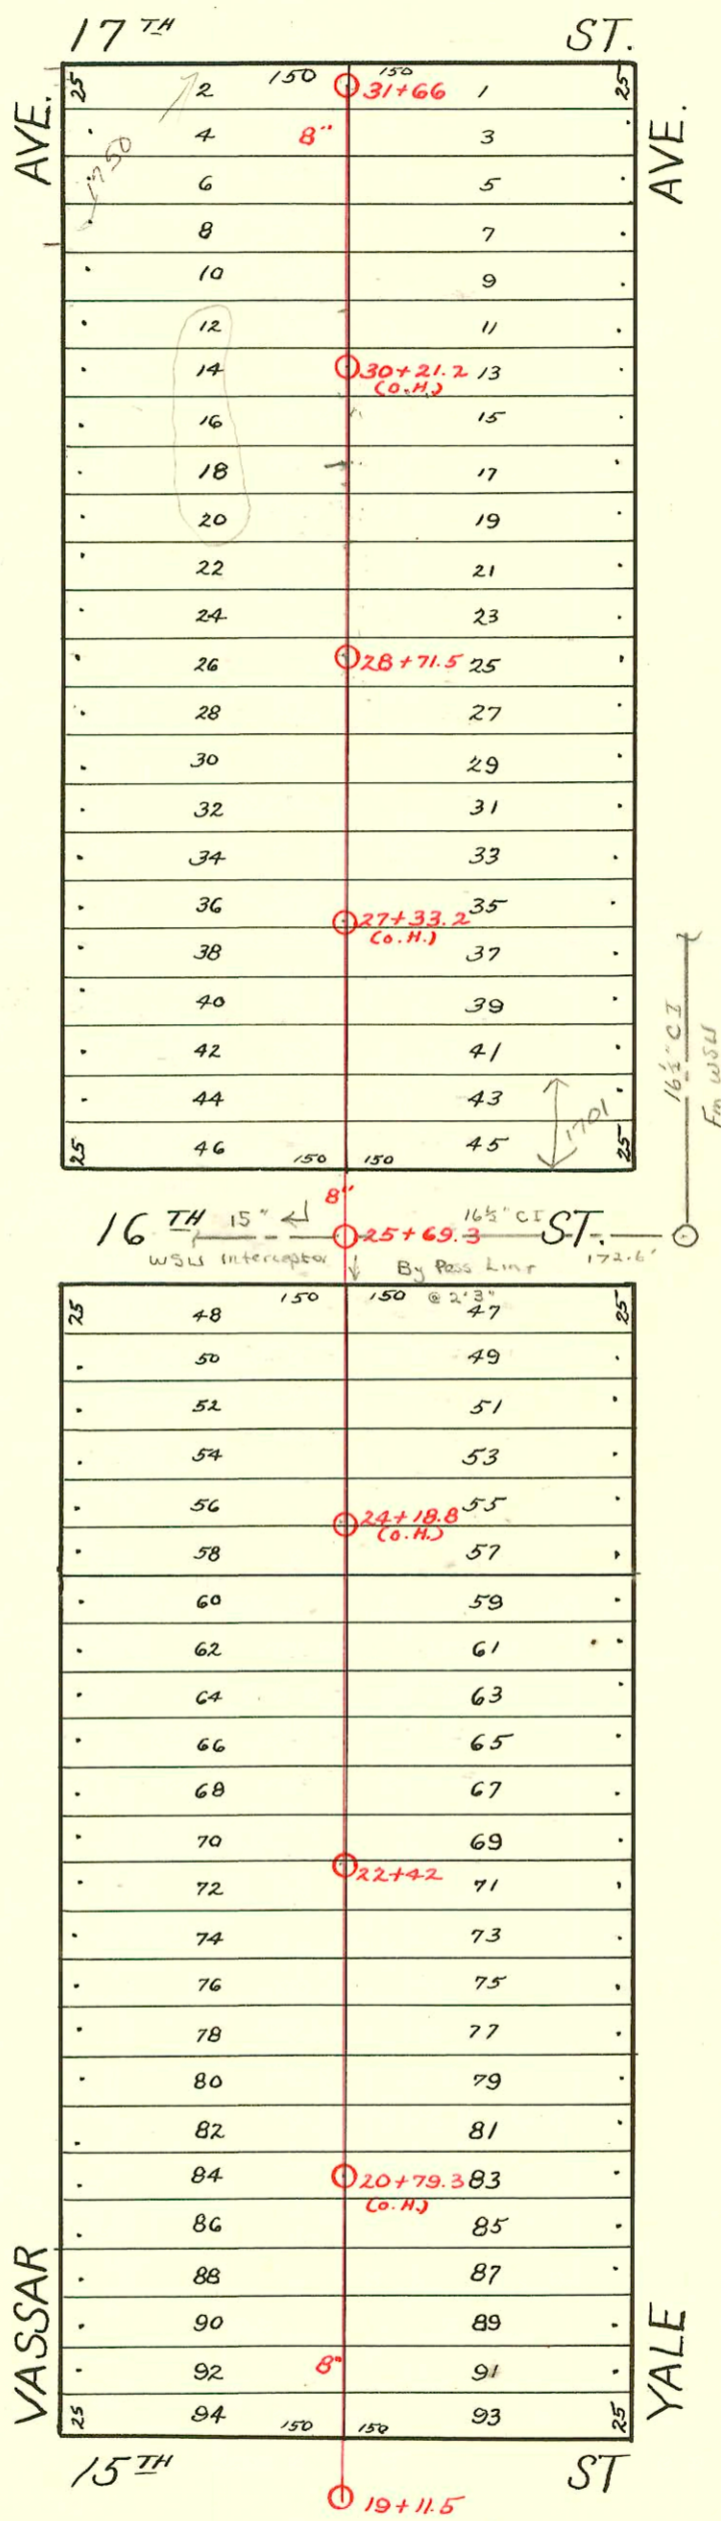 17TH ST.
AVE.
AVE.
25 2 150 150 31+66 1 25
4 8" 3
1750
6 5
8 7
10 9
12 11
14 30+21.2 13
(O.H.)
16 15
18 17
20 19
22 21
24 23
26 28+71.5 25
28 27
30 29
32 31
34 33
36 27+33.2 35
(O.H.)
38 37
40 39
42 41
44 43
1701
25 46 150 150 45 25
16½" CI
Fm WSU
8"
16TH 15" 25+69.3 16½" CI ST. 172.6'
WSU Interceptor By Pass Line
@ 2'3"
25 48 150 150 47 25
50 49
52 51
54 53
56 24+18.8 55
(O.H.)
58 57
60 59
62 61
64 63
66 65
68 67
70 69
22+42
72 71
74 73
76 75
78 77
80 79
82 81
84 20+79.3 83
(O.H.)
86 85
88 87
90 89
92 8" 91
25 94 150 150 93 25
VASSAR
YALE
15TH ST
19+11.5